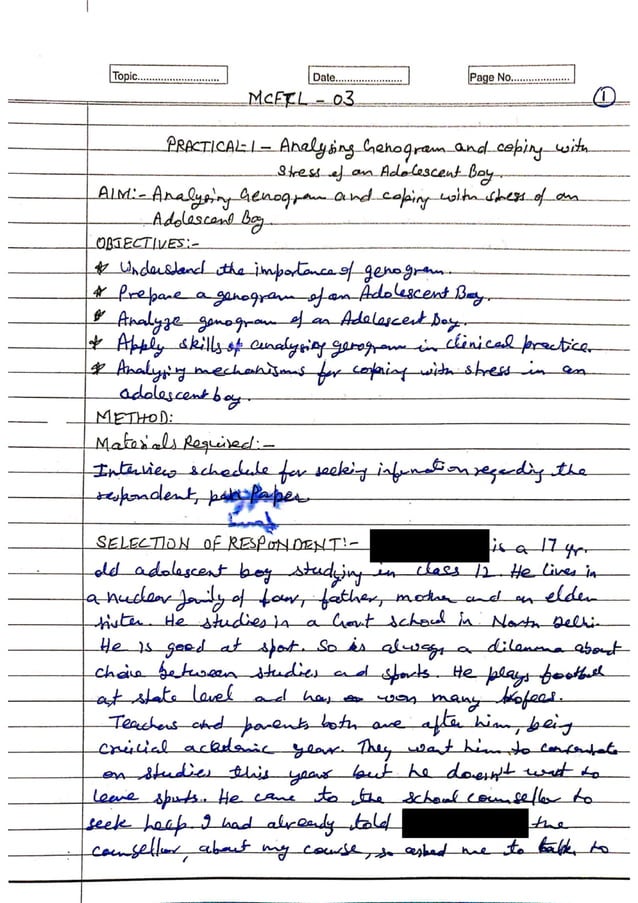 Topic............................ Date........................ Page No....................
MCFTL - 03 1
PRACTICAL-1 - Analysing Genogram and coping with
stress of an Adolescent Boy.
AIM:- Analysing Genogram and coping with stress of an
Adolescent Boy.
OBJECTIVES:-
* Understand the importance of genogram.
* Prepare a genogram of an Adolescent Boy.
* Analyze genogram of an Adolescent Boy.
* Apply skills of analysing genogram in clinical practice.
* Analysing mechanisms for coping with stress in an
adolescent boy.
METHOD:
Materials Required:-
Interview schedule for seeking information regarding the
respondent, pen Paper
SELECTION OF RESPONDENT:- is a 17 yr.
old adolescent boy studying in class 12. He lives in
a nuclear family of four, father, mother and an elder
sister. He studies in a Govt school in North Delhi.
He is good at sport. So is always a dilemma about
choice between studies and sports. He plays football
at state level and has won many
Teachers and parents both are after him, being
crucial academic year. They want him to concentrate
on studies this year but he doesn't want to
leave sports. He came to the school counsellor to
seek help. I had already told the
counsellor, about my course, so asked me to talk to